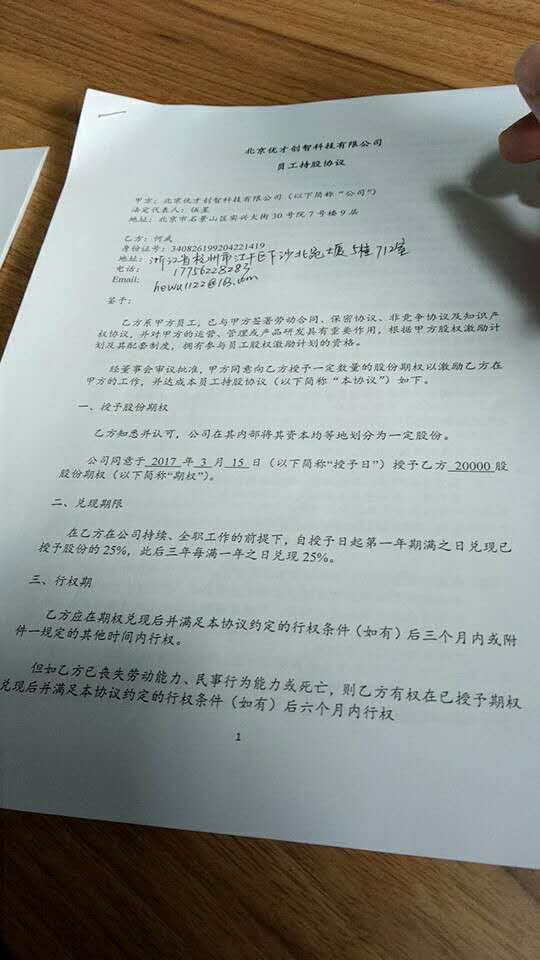 北京优才创智科技有限公司
员工持股协议
甲方：北京优才创智科技有限公司（以下简称“公司”）
法定代表人：伍星
地址：北京市石景山区实兴大街30号院7号楼9层
乙方：何武
身份证号：340826199204221419
地址：浙江省杭州市江干区下沙北苑大厦5幢712室
电话：17756228283
Email: hewu1122@163.com
鉴于：
乙方系甲方员工，已与甲方签署劳动合同、保密协议、非竞争协议及知识产
权协议，并对甲方的运营、管理或产品研发具有重要作用，根据甲方股权激励计
划及其配套制度，拥有参与员工股权激励计划的资格。
经董事会审议批准，甲方同意向乙方授予一定数量的股份期权以激励乙方在
甲方的工作，并达成本员工持股协议（以下简称“本协议”）如下。
一、授予股份期权
乙方知悉并认可，公司在其内部将其资本均等地划分为一定股份。
公司同意于 2017 年 3 月 15 日（以下简称“授予日”）授予乙方 20000 股
股份期权（以下简称“期权”）。
二、兑现期限
在乙方在公司持续、全职工作的前提下，自授予日起第一年期满之日兑现已
授予股份的25%，此后三年每满一年之日兑现25%。
三、行权期
乙方应在期权兑现后并满足本协议约定的行权条件（如有）后三个月内或附
件一规定的其他时间内行权。
但如乙方已丧失劳动能力、民事行为能力或死亡，则乙方有权在已授予期权
兑现后并满足本协议约定的行权条件（如有）后六个月内行权
1